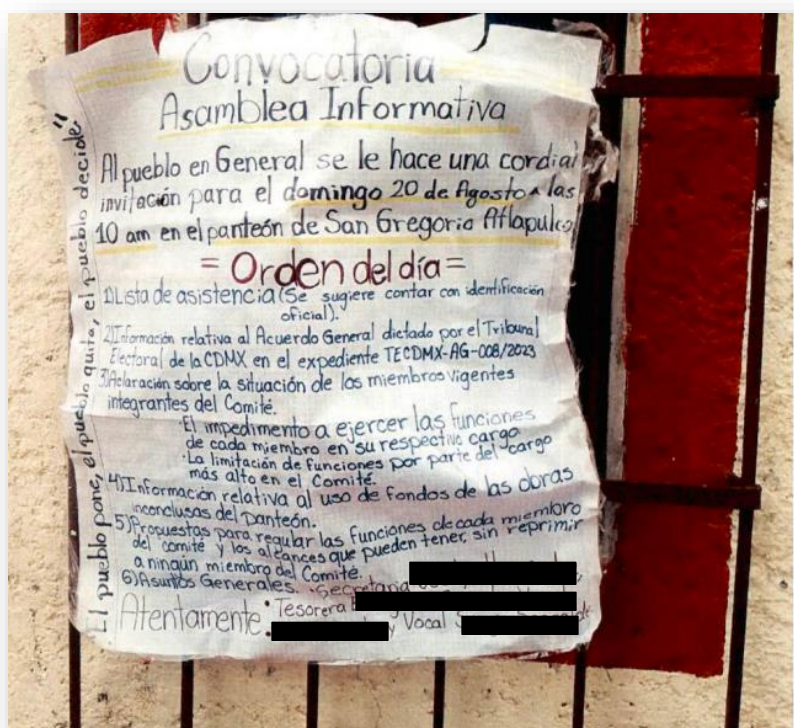 Convocatoria
Asamblea Informativa
Al pueblo en General se le hace una cordial
invitación para el domingo 20 de Agosto a las
10 am en el panteón de San Gregorio Atlapulco
= Orden del día =
1) Lista de asistencia (Se sugiere contar con identificación
oficial).
2) Información relativa al Acuerdo General dictado por el Tribunal
Electoral de la CDMX en el expediente TECDMX-AG-008/2023
3) Aclaración sobre la situación de los miembros vigentes
integrantes del Comité.
· El impedimento a ejercer las funciones
de cada miembro en su respectivo cargo
· La limitación de funciones por parte del cargo
más alto en el Comité.
4) Información relativa al uso de fondos de las obras
inconclusas del Panteón.
5) Propuestas para regular las funciones de cada miembro
del comité y los alcances que pueden tener, sin reprimir
a ningún miembro del Comité.
6) Asuntos Generales. · Secretaria
Atentamente: Tesorera
y Vocal
El pueblo pone, el pueblo quita, el pueblo decide"